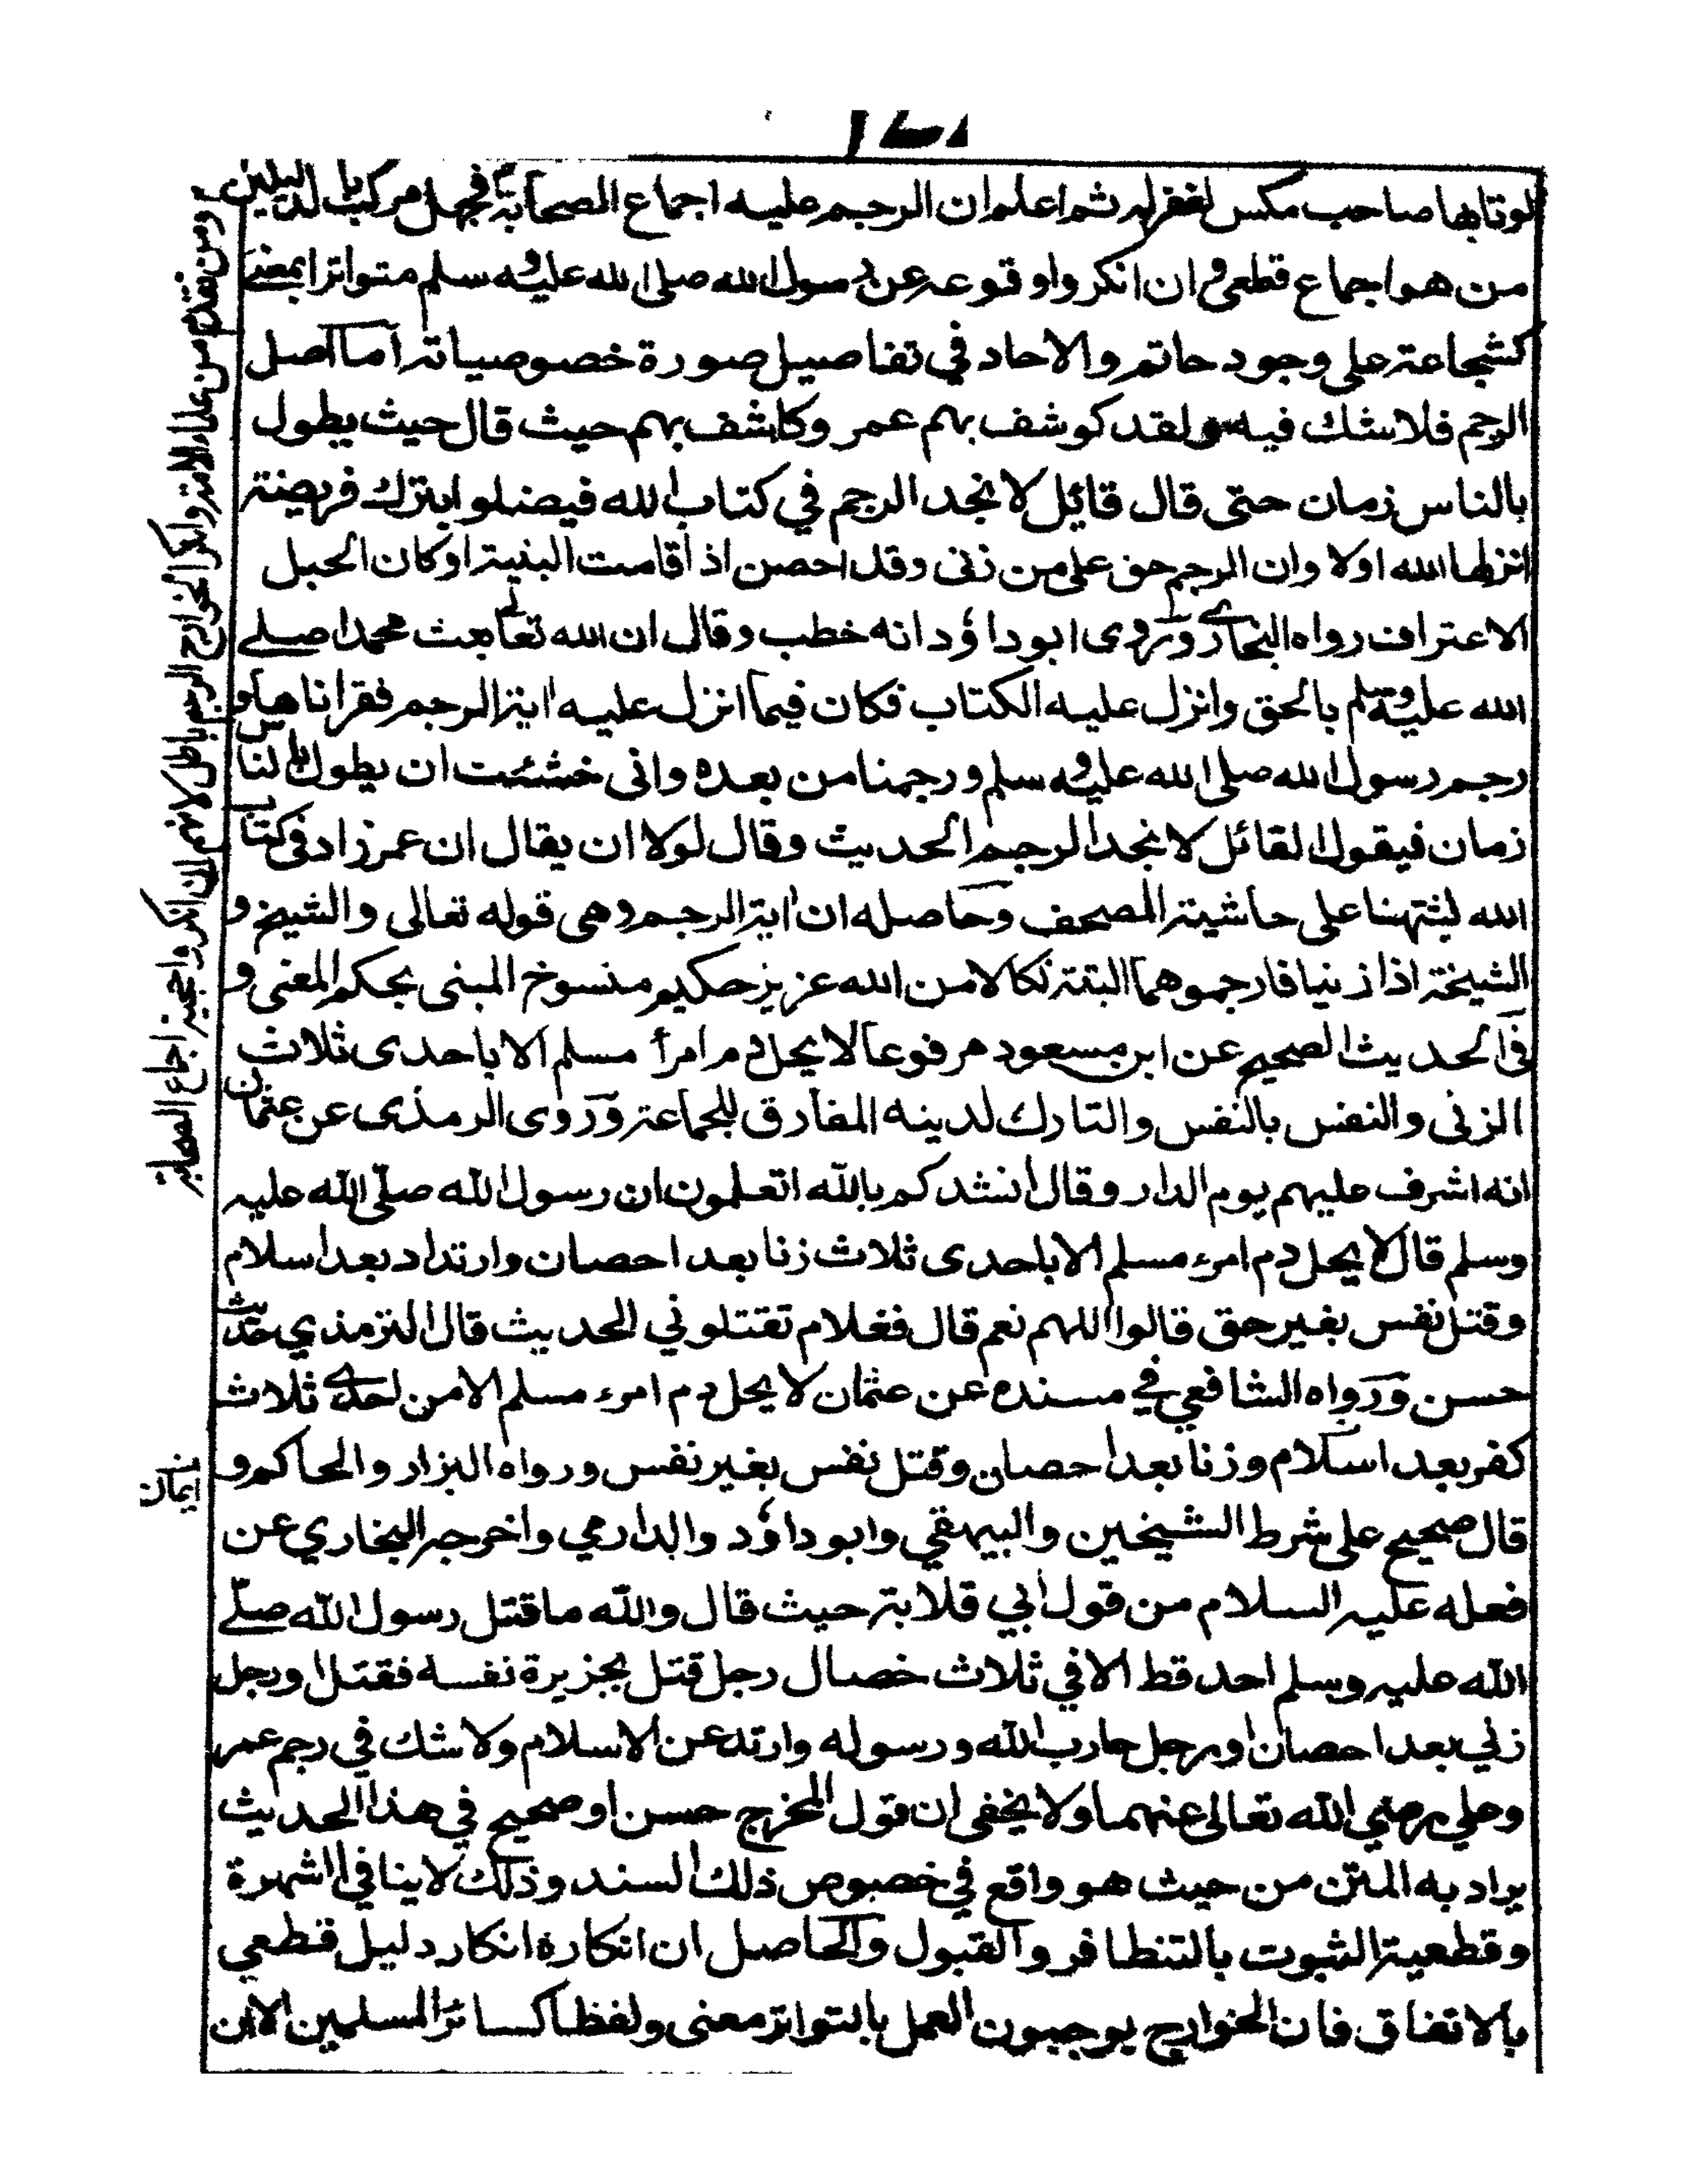 لو تابها صاحب مكس لغفر له ثم اعلم ان الرجم عليه اجماع الصحابة فجهل مركب بالدليل
من هو اجماع قطعي وان انكروا وقوعه عن رسول الله صلى الله عليه وسلم متواترا بمعنى
كشجاعة علي وجود حاتم والاحاد في تفاصيل صورة خصوصياته اما اصل
الرجم فلا شك فيه ولقد كوشف بهم عمر وكاشف بهم حيث قال حيث يطول
بالناس زمان حتى قال قائل لا نجد الرجم في كتاب الله فيضلوا بترك فريضة
انزلها الله اولا وان الرجم حق على من زنى وقد احصن اذا قامت البنية او كان الحبل
الاعتراف رواه البخاري وروى ابو داؤد انه خطب وقال ان الله تعالى بعث محمدا صلے
الله عليه وسلم بالحق وانزل عليه الكتاب فكان فيما انزل عليه اية الرجم فقراناها و
رجم رسول الله صلى الله عليه وسلم ورجمنا من بعده وانى خشئت ان يطول بالناس
زمان فيقول القائل لا نجد الرجم الحديث وقال لولا ان يقال ان عمر زاد فى كتاب
الله لثتهنا على حاشية المصحف وحاصله ان اية الرجم وهى قوله تعالى والشيخ و
الشيخة اذا زنيا فارجموهما البتة نكالا من الله عزيز حكيم منسوخ المبنى بحكم المعنى و
فى الحديث الصحيح عن ابن مسعود مرفوعا لا يحل دم امرأ مسلم الا باحدى ثلاث
الزنى والنفس بالنفس والتارك لدينه المفارق للجماعة وروى الرمذى عن عثمان
انه اشرف عليهم يوم الدار وقال انشدكم بالله اتعلمون ان رسول الله صلّى الله عليه
وسلم قال لا يحل دم امرء مسلم الا باحدى ثلاث زنا بعد احصان وارتداد بعد اسلام
وقتل نفس بغير حق قالوا اللهم نعم قال فغلام تقتلوني الحديث قال الترمذي حديث
حسن ورواه الشافعي في مسنده عن عثمان لا يحل دم امرء مسلم الا من احدے ثلاث
كفر بعد اسلام وزنا بعد احصان وقتل نفس بغير نفس ورواه البزار والحاكم و
قال صحيح على شرط الشيخين والبيهقي وابو داؤد والدارمي واخرجه البخاري عن
فعله عليه السلام من قول ابي قلابة حيث قال والله ما قتل رسول الله صلّے
الله عليه وسلم احد قط الا في ثلاث خصال رجل قتل بجزيرة نفسه فقتل او رجل
زني بعد احصان او رجل حارب الله ورسوله وارتد عن الاسلام ولا شك في رجم عمر
وعلي رضي الله تعالى عنهما ولا يخفى ان قول المخرج حسن او صحيح في هذا الحديث
يراد به المتن من حيث هو واقع في خصوص ذلك السند وذلك لا ينافي الشهرة
وقطعية الثبوت بالتظافر والقبول والحاصل ان انكاره انكار دليل قطعي
بالاتفاق فان الخوارج يوجبون العمل بالتواتر معنى ولفظا كسائر المسلمين الا ان
ومن تقدم من علماء الامة وانكر الخوارج الرجم باطل لانهم ان انكروا حجية اجماع الصحابة
ايمان